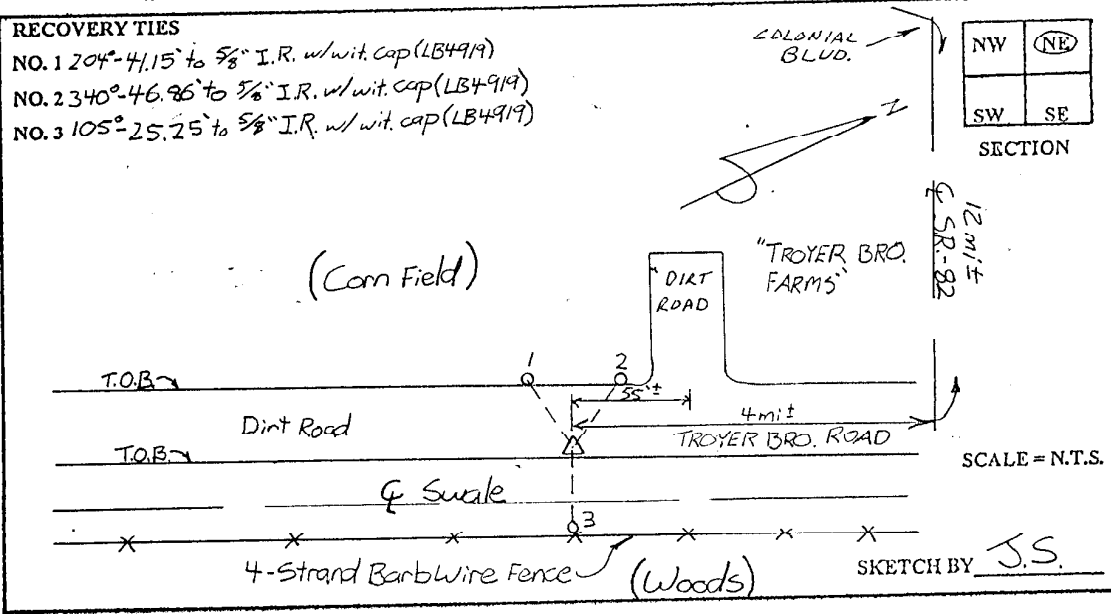 RECOVERY TIES
NO. 1 204°-41.15' to 5/8" I.R. w/wit. cap (LB4919)
NO. 2 340°-46.86' to 5/8" I.R. w/wit. cap (LB4919)
NO. 3 105°-25.25' to 5/8" I.R. w/ wit. cap (LB4919)
COLONIAL
BLVD.
NW NE
SW SE
SECTION
N
12 mi±
℄ SR.-82
(Corn Field)
"DIRT
ROAD
"TROYER BRO.
FARMS"
1
2
T.O.B.
55'±
4 mi±
Dirt Road
TROYER BRO. ROAD
T.O.B.
SCALE = N.T.S.
℄ Swale
3
4-Strand Barbwire Fence
(Woods)
SKETCH BY J.S.